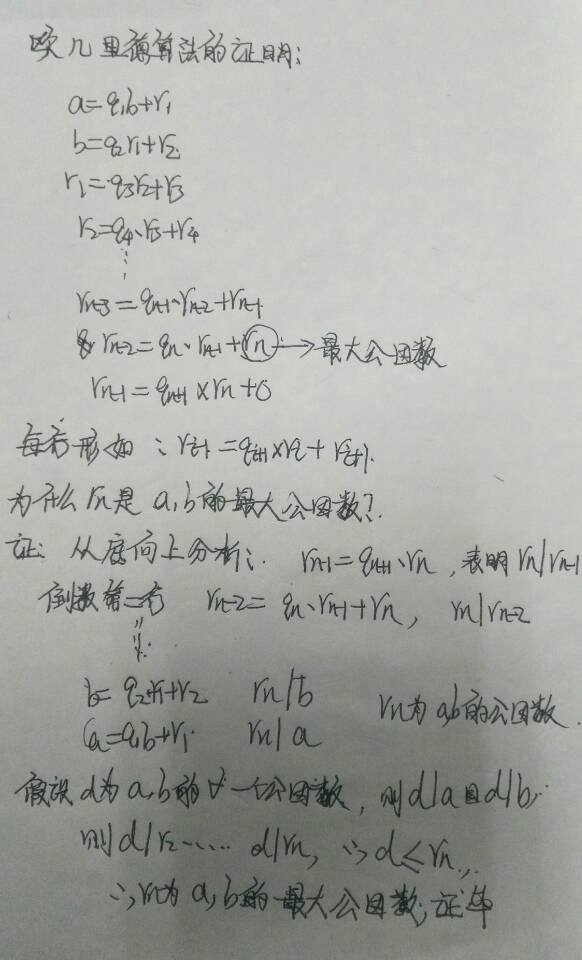 欧几里得算法的证明:
a=q₁b+r₁
b=q₂r₁+r₂
r₁=q₃r₂+r₃
r₂=q₄·r₃+r₄
⋮
rₙ₋₃=qₙ₋₁·rₙ₋₂+rₙ₋₁
rₙ₋₂=qₙ·rₙ₋₁+rₙ→最大公因数
rₙ₋₁=qₙ₊₁×rₙ+0
每行形如:rᵢ₋₁=qᵢ₊₁×rᵢ+rᵢ₊₁.
为什么rₙ是a,b的最大公因数?
证:从底向上分析:. rₙ₋₁=qₙ₊₁·rₙ,表明rₙ|rₙ₋₁
倒数第二行 rₙ₋₂=qₙ·rₙ₋₁+rₙ, rₙ|rₙ₋₂
⋮
b=q₂r₁+r₂ rₙ|b rₙ为a,b的公因数.
a=q₁b+r₁. rₙ|a
假设d为a,b的∀一个公因数,则d|a且d|b,
则d|r₂…… d|rₙ, ∴d≤rₙ.
∴rₙ为a,b的最大公因数;证毕